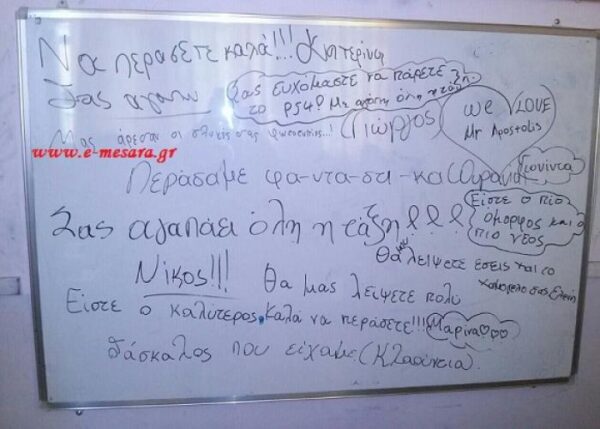 Να περάσετε καλά!!! Κατερίνα
Σας αγαπώ
Σας ευχόμαστε να πάρετε
το PS4! Με αγάπη όλη η τάξη
Μας άρεσαν οι σας
(Γιώργος)
we LOVE
Mr Apostolis
www.e-mesara.gr
Περάσαμε φα-ντα-στι-κα (Ουρανία)
Σας αγαπάει όλη η τάξη!!!
Είστε ο πιο
όμορφος και ο
πιο νέος
Νίκος!!!
Θα μας λείψετε πολύ
Θα μου λείψετε εσείς και το
χαμόγελο σας Ελένη
Είστε ο καλύτερος
Καλά να περάσετε!!! Μαρίνα♡♡♡
δάσκαλος που είχαμε